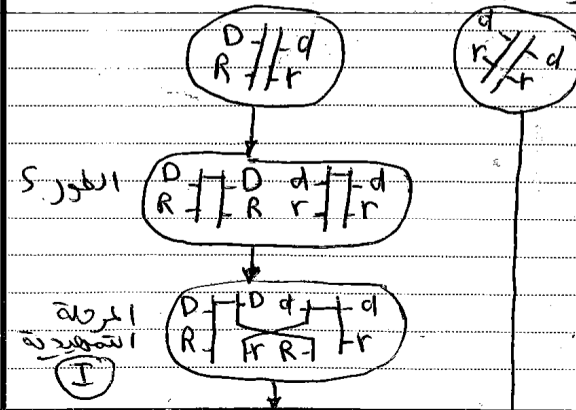 D d
R r
d d
r r
الطور S
D D d d
R R r r
المرحلة
التمهيدية
I
D D d d
R r R r